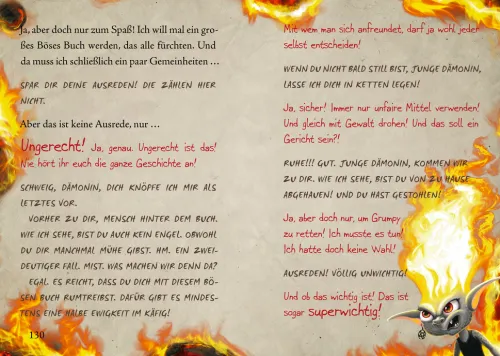 Ja, aber doch nur zum Spaß! Ich will mal ein gro-
ßes Böses Buch werden, das alle fürchten. Und
da muss ich schließlich ein paar Gemeinheiten …
SPAR DIR DEINE AUSREDEN! DIE ZÄHLEN HIER
NICHT.
Aber das ist keine Ausrede, nur …
Ungerecht! Ja, genau. Ungerecht ist das!
Nie hört ihr euch die ganze Geschichte an!
SCHWEIG, DÄMONIN, DICH KNÖPFE ICH MIR ALS
LETZTES VOR.
VORHER ZU DIR, MENSCH HINTER DEM BUCH.
WIE ICH SEHE, BIST DU AUCH KEIN ENGEL. OBWOHL
DU DIR MANCHMAL MÜHE GIBST. HM. EIN ZWEI-
DEUTIGER FALL. MIST. WAS MACHEN WIR DENN DA?
EGAL. ES REICHT, DASS DU DICH MIT DIESEM BÖ-
SEN BUCH RUMTREIBST. DAFÜR GIBT ES MINDES-
TENS EINE HALBE EWIGKEIT IM KÄFIG!
130
Mit wem man sich anfreundet, darf ja wohl jeder
selbst entscheiden!
WENN DU NICHT BALD STILL BIST, JUNGE DÄMONIN,
LASSE ICH DICH IN KETTEN LEGEN!
Ja, sicher! Immer nur unfaire Mittel verwenden!
Und gleich mit Gewalt drohen! Und das soll ein
Gericht sein?!
RUHE!!! GUT. JUNGE DÄMONIN, KOMMEN WIR
ZU DIR. WIE ICH SEHE, BIST DU VON ZU HAUSE
ABGEHAUEN! UND DU HAST GESTOHLEN!
Ja, aber doch nur, um Grumpy
zu retten! Ich musste es tun!
Ich hatte doch keine Wahl!
AUSREDEN! VÖLLIG UNWICHTIG!
Und ob das wichtig ist! Das ist
sogar superwichtig!